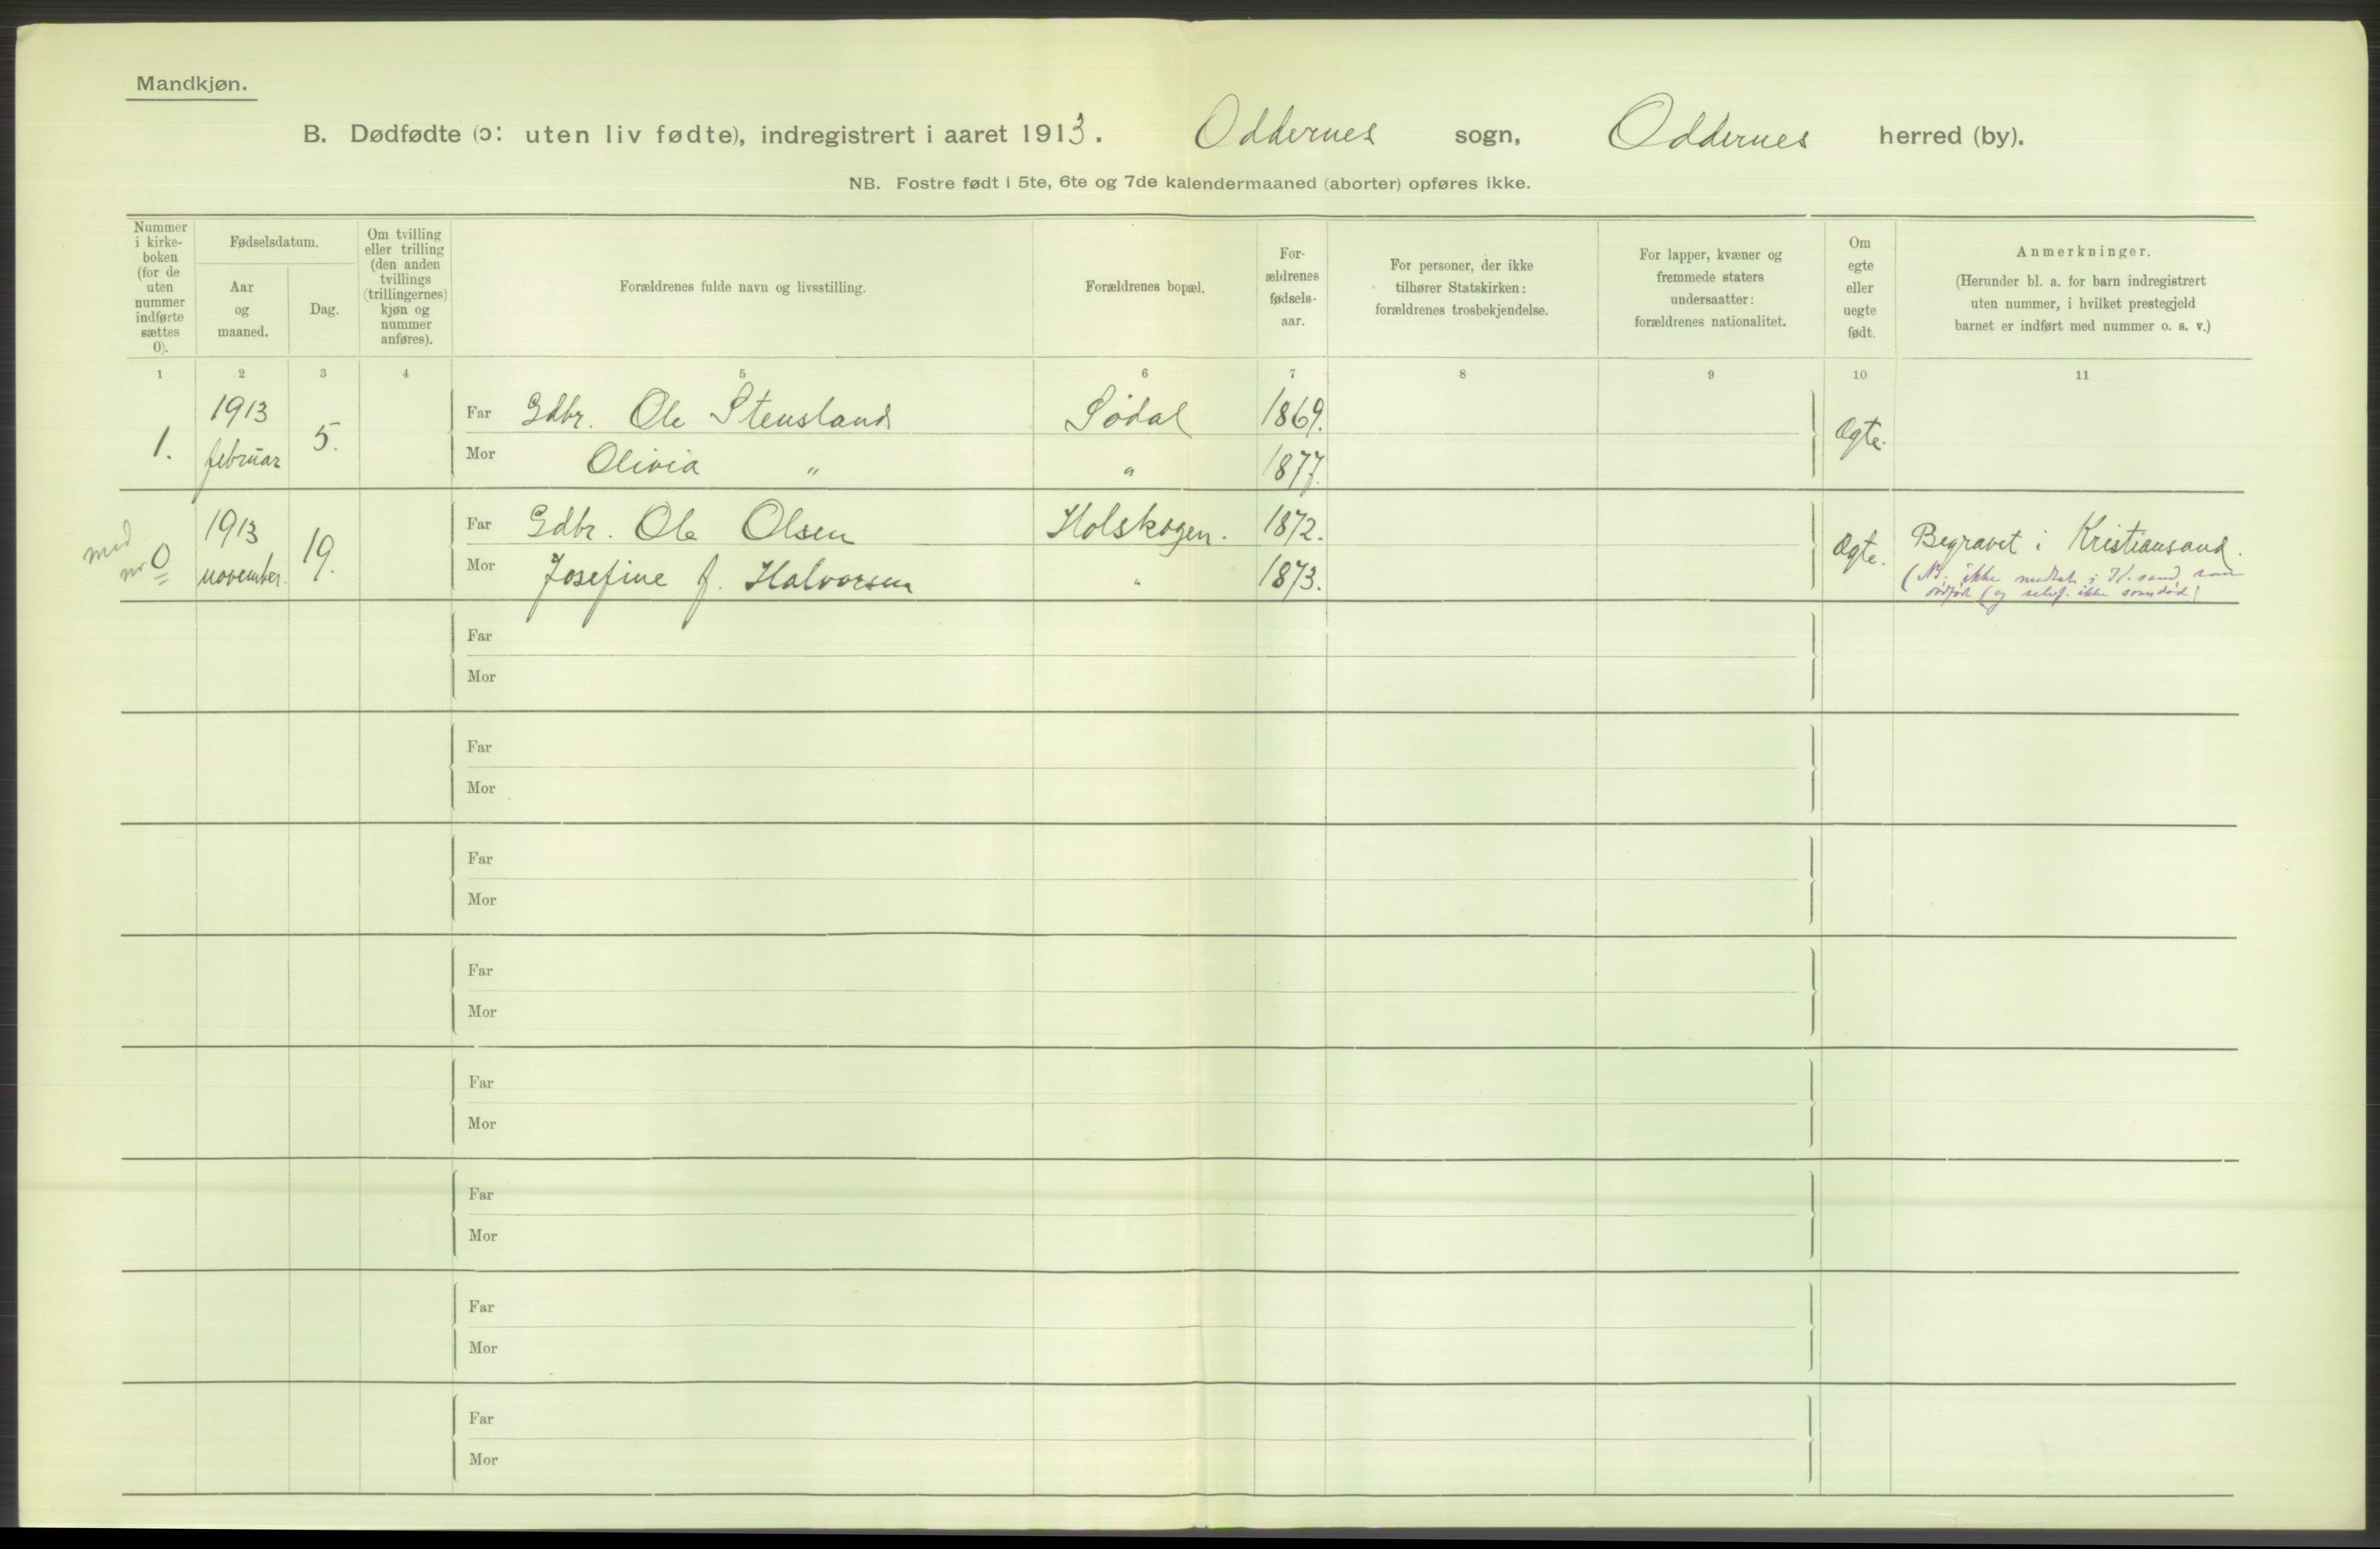 Mandkjøn.
B. Dødfødte (ɔ: uten liv fødte), indregistrert i aaret 1913. Oddernes sogn, Oddernes herred (by).
NB. Fostre født i 5te, 6te og 7de kalendermaaned (aborter) opføres ikke.
Nummer
i kirke-
boken
(for de
uten
nummer
indførte
sættes
0).
Fødselsdatum.
Aar
og
maaned.
Dag.
Om tvilling
eller trilling
(den anden
tvillings
(trillingernes)
kjøn og
nummer
anføres).
Forældrenes fulde navn og livsstilling.
Forældrenes bopæl.
For-
ældrenes
fødsels-
aar.
For personer, der ikke
tilhører Statskirken:
forældrenes trosbekjendelse.
For lapper, kvæner og
fremmede staters
undersaatter:
forældrenes nationalitet.
Om
egte
eller
uegte
født.
Anmerkninger.
(Herunder bl. a. for barn indregistrert
uten nummer, i hvilket prestegjeld
barnet er indført med nummer o. s. v.)
1 2 3 4 5 6 7 8 9 10 11
1. 1913 februar 5. Far Gdbr. Ole Stensland Sødal 1869. Ægte.
Mor Olivia " " 1877.
med nr 0 1913 november. 19. Far Gdbr. Ole Olsen Holskogen. 1872. Ægte. Begravet i Kristiansand.
Mor Josefine J. Halvorsen " 1873.
(NB. ikke medtat i K.sand som
dødfødt (og selvf. ikke som død)
Far
Mor
Far
Mor
Far
Mor
Far
Mor
Far
Mor
Far
Mor
Far
Mor
Far
Mor